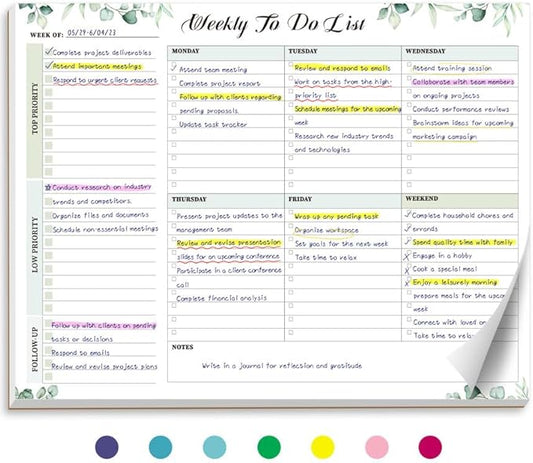 Weekly To Do List
WEEK OF: 05/29-6/04/23
TOP PRIORITY
Complete project deliverables
Attend important meetings
Respond to urgent client requests
LOW PRIORITY
Conduct research on industry
trends and competitors.
Organize files and documents
Schedule non-essential meetings
FOLLOW-UP
Follow up with clients on pending
tasks or decisions
Respond to emails
Review and revise project plans
MONDAY
Attend team meeting
Complete project report
Follow up with clients regarding
pending proposals.
Update task tracker
TUESDAY
Review and respond to emails
Work on tasks from the high-
priority list
Schedule meetings for the upcoming
week
Research new industry trends
and technologies
WEDNESDAY
Attend training session
Collaborate with team members
on ongoing projects
Conduct performance reviews
Brainstorm ideas for upcoming
marketing campaign
THURSDAY
Present project updates to the
management team
Review and revise presentation
slides for an upcoming conference
Participate in a client conference
call
Complete financial analysis
FRIDAY
Wrap up any pending task
Organize workspace
Set goals for the next week
Take time to relax
WEEKEND
Complete household chores and
errands
Spend quality time with family
Engage in a hobby
Cook a special meal
Enjoy a leisurely morning
prepare meals for the upcom
week
Connect with loved on
Take time to relax
NOTES
Write in a journal for reflection and gratitude